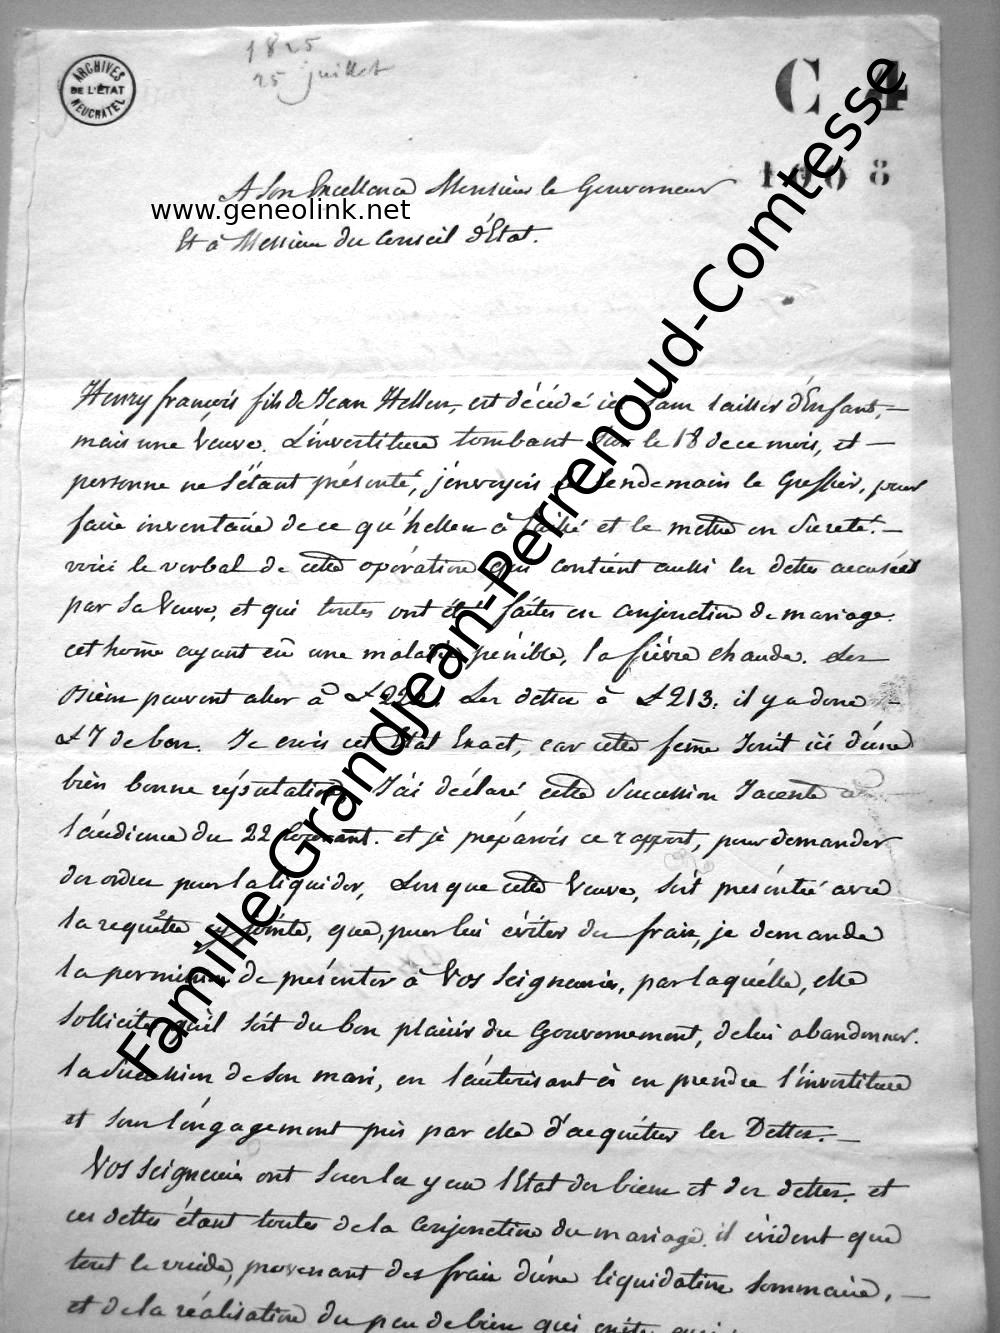 1825
25 juillet
ARCHIVES
DE L'ÉTAT
NEUCHÂTEL
C 4
8
A Son Excellence Monsieur le Gouverneur
www.geneolink.net
Et à Messieurs du Conseil d'Etat.
Famille Grandjean-Perrenoud-Comtesse
Henry françois fils de Jean Hellen, est décédé ici sans laisser d'Enfant,
mais une Veuve. L'investiture tombant sur le 18 de ce mois, et
personne ne s'étant présenté, j'envoyois le lendemain le Greffier, pour
faire inventaire de ce qu'hellen à laissé et le mettre en Sureté.
voici le verbal de cette opération qui contient aussi les dettes accusées
par la Veuve, et qui toutes ont été faites en conjonction de mariage.
cet home ayant eû une maladie pénible, la fièvre chaude. Les
biens peuvent aller à £ Les dettes à £ 213. il y a donc
£ 7 de bon. Je crois cet Etat Exact, car cette feme Jouit ici d'une
bien bonne réputation. J'ai déclaré cette Succession Jacente à
l'audience du 22 Courant. et je préparois ce rapport, pour demander
des ordres pour la liquider, Lorsque cette Veuve, s'est présentée avec
la requête cy jointe, que, pour lui éviter des frais, je demande
la permission de présenter à Vos Seigneuries, par laquelle, elle
sollicite qu'il soit du bon plaisir du Gouvernement, de lui abandonner
la Succession de son mari, en l'autorisant à en prendre l'investiture
et sous l'engagement pris par elle d'acquitter les Dettes.
Vos Seigneuries ont sous les yeux l'Etat des biens et des dettes. et
ces dettes étant toutes de la Conjonction du mariage. il évident que
tout le vuide, provenant des frais d'une liquidation sommaire,
et de la réalisation du peu de bien qui